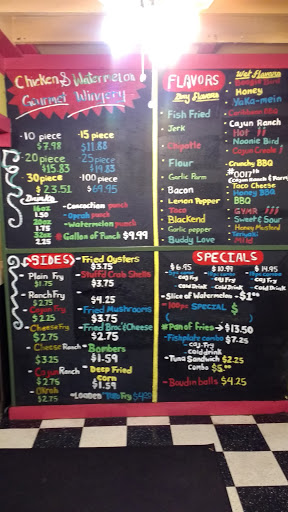 Chicken & Watermelon
Gourmet Wingery
-10 piece
$7.98
-15 piece
$11.88
-20 piece
$15.83
-25 piece
$19.83
30 piece
$23.51
-100 piece
$69.95
Drinks
16oz
1.50
20oz
1.75
32oz
2.25
-Concoction punch
-Oprah punch
-Watermelon punch
Gallon of Punch $9.99
FLAVORS
Dry Flavors
Fish Fried
Jerk
Chipotle
Fleur
Garlic Parm
Bacon
Lemon Pepper
Taco
Blackend
Garlic pepper
Buddy Love
Wet Flavors
Honey
YaKa-mein
Caribbean BBQ
Cajun Ranch
Hot
Noonie Bird
Cajun Creole
Crunchy BBQ
#0017th
(Cajun Ranch & Parm)
Taco Cheese
Honey BBQ
BBQ
GYMR
Sweet & Sour
Honey Mustard
Teriyaki
Mild
SIDES
Plain Fry
$1.75
Ranch Fry
$2.75
Cajun Fry
$2.75
Cheese Fry
$2.75
Cheesy Ranch
$3.25
Cajun Ranch
$2.75
Okra
$2.75
-Fried Oysters
$3.75
Stuff Crab Shells
$3.75
$4.25
-Fried Mushrooms
$3.75
-Fried Broc & Cheese
$2.75
-Bombers
$1.59
-Deep Fried
Corn
$1.59
-Loaded
SPECIALS
$6.95
Caj Fry
Cold Drink
$10.99
Caj Fry
Cold Drink
$14.95
Caj Fry
Cold Drink
-Slice of Watermelon - $1.00
-100pc SPECIAL $
#Pan of Fries → $13.50
-Fishplate combo $7.25
-caj. Fry
-cold drink
-Tuna Sandwich $2.25
Combo $5.00
-Boudin balls $4.25